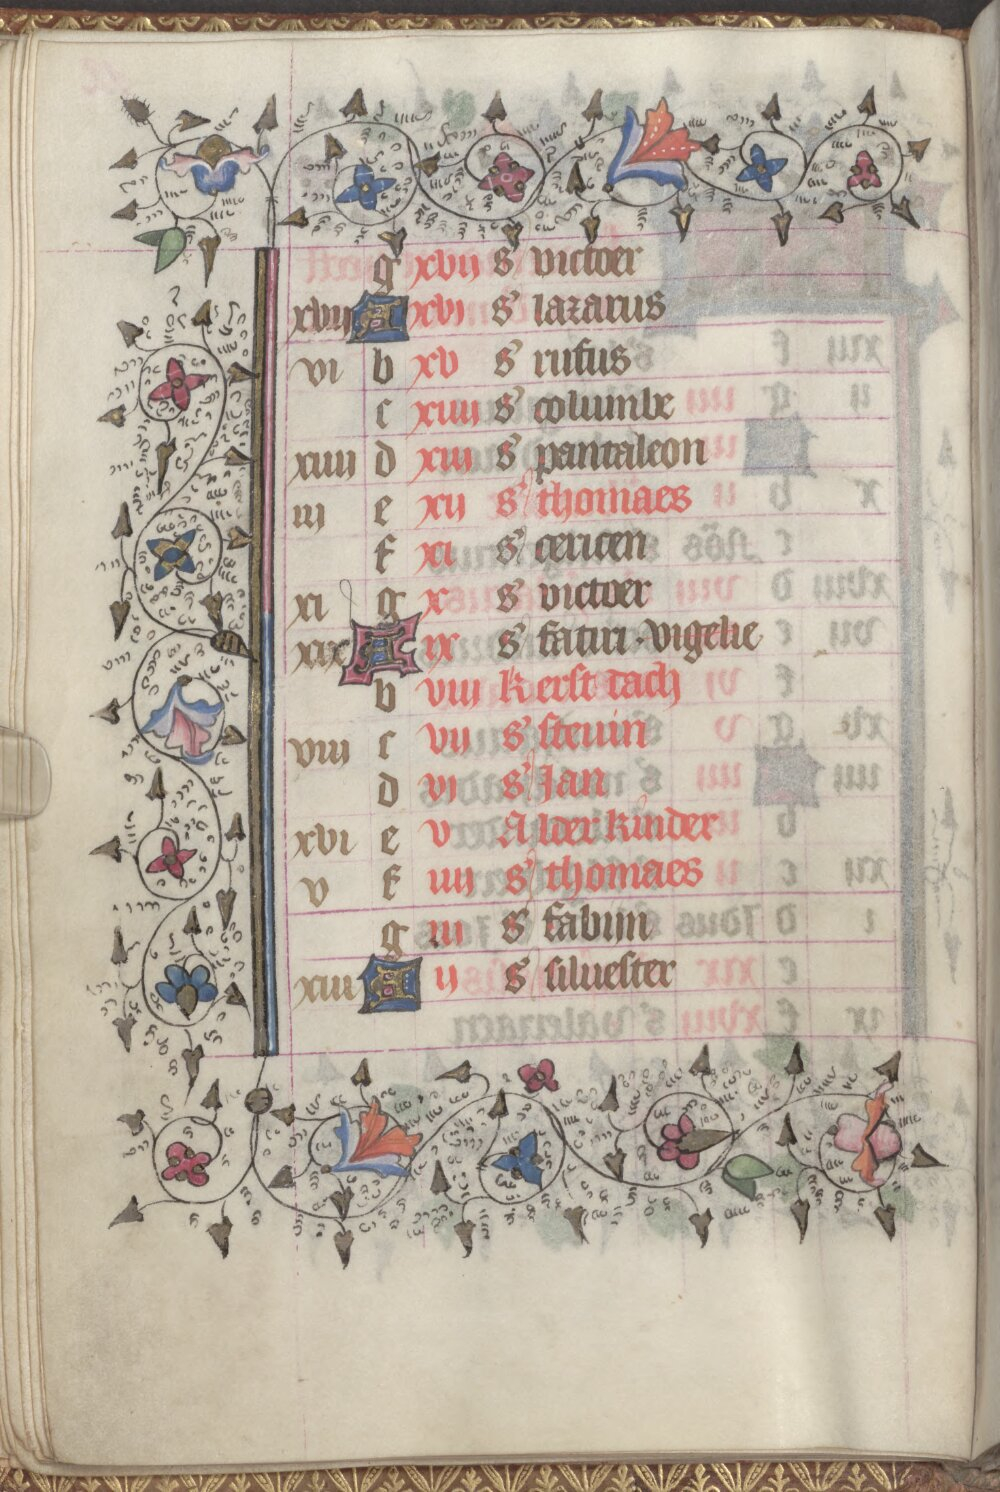 g xvii s' victoer
xviii A xvi s' lazarus
vi b xv s' rufus
c xiiii s' columbe
xiiii d xiii s' pantaleon
iii e xii s' thomaes
f xi s' cericen
xi g x s' victoer
xix A ix s' fatiri vigelie
b viii kerst dach
viii c vii s' steuin
d vi s' Jan
xvi e v Alder kinder
v f iiii s' thomaes
g iii s' fabiin
xiii A ii s' siluester